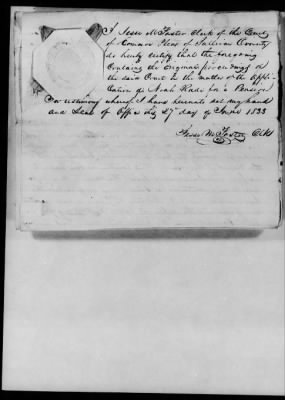 I Jesse McFaster Clerk of the Court
of Common Pleas of Sullivan County
do hereby certify that the foregoing
Contains the Original proceedings of
the said Court in the matter of the Appli-
cation of Noah for a Pension
In testimony whereof I have hereunto set my hand
and Seal of Office this 27th day of June 1833
Clk